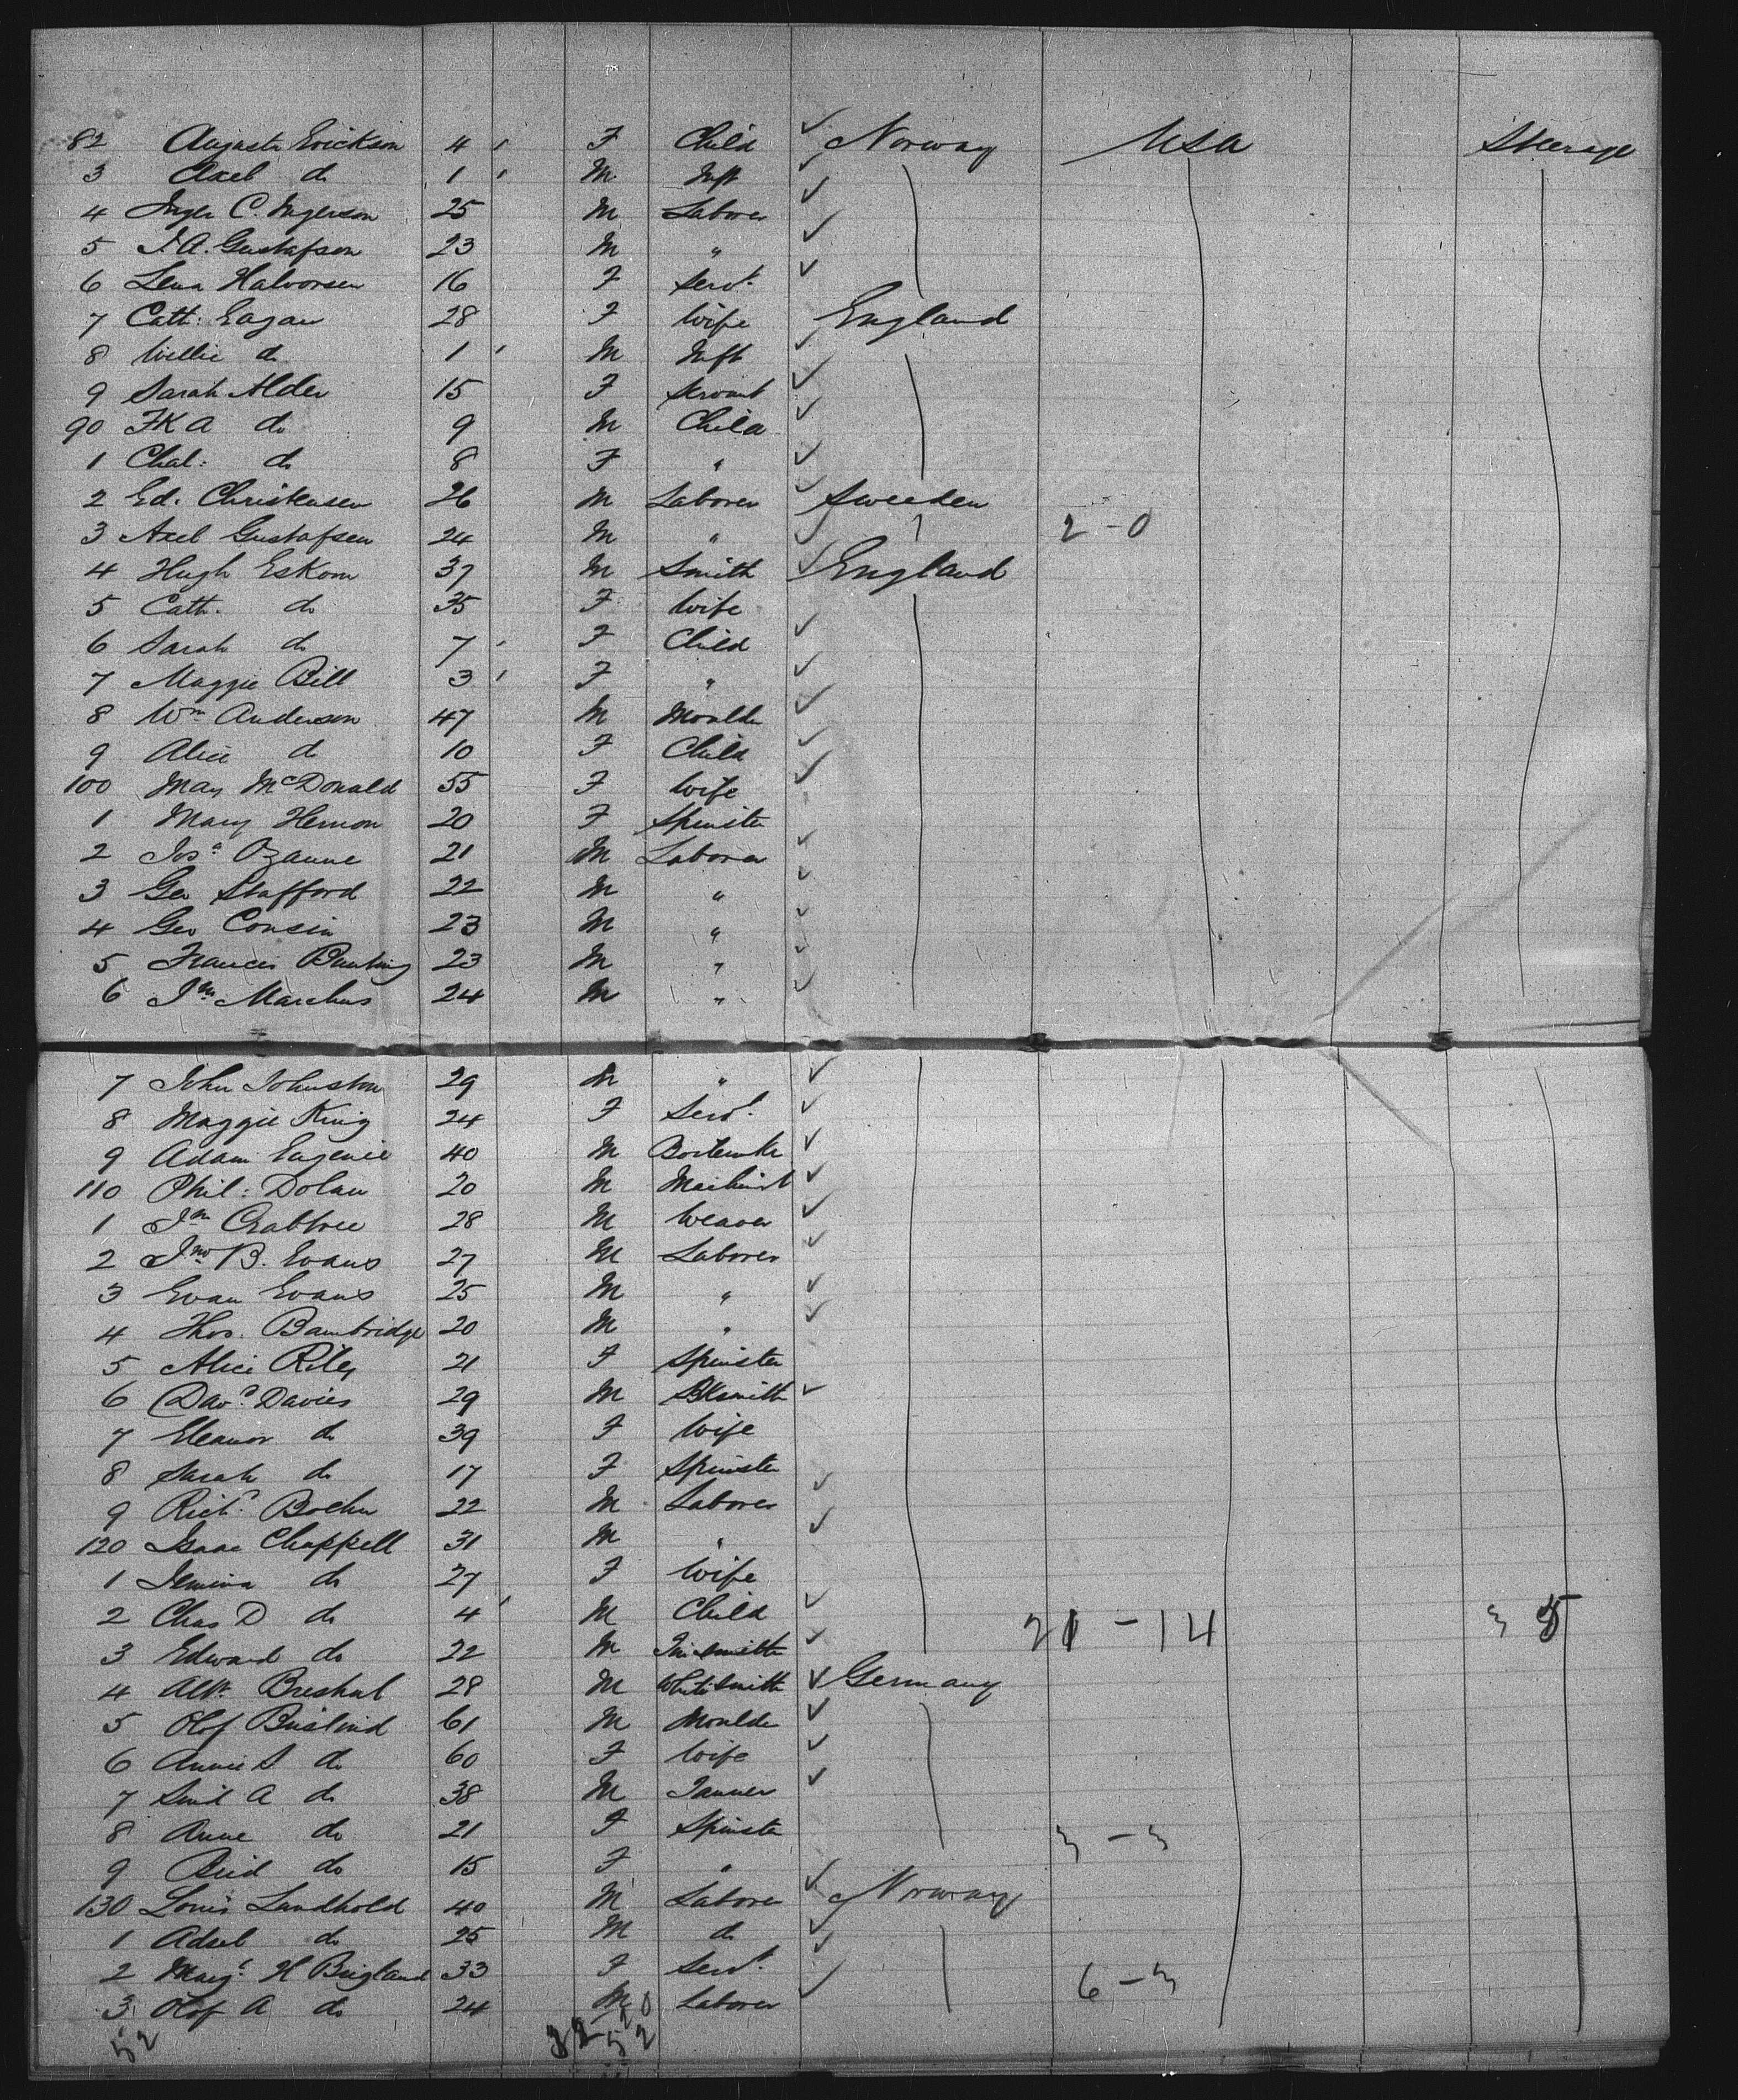 82 Augusta Erickson 4 F Child Norway USA Steerage
3 Axel do 1 M Inft
4 Inger C. Ingerson 25 M Laborer
5 J. A. Gustafson 23 M "
6 Lena Halvorsen 16 F Servt
7 Cath: Eagan 28 F Wife England
8 Willie do 1 M Inft
9 Sarah Alder 15 F Servant
90 F K A do 9 M Child
1 Chal: do 8 F "
2 Ed. Christensen 26 M Laborer Sweeden
3 Axel Gustafsen 24 M " 2-0
4 Hugh Eskom 37 M Smith England
5 Cath. do 35 F Wife
6 Sarah do 7 F Child
7 Maggie Bill 3 F "
8 Wm Anderson 47 M Moulder
9 Alice do 10 F Child
100 Mary McDonald 55 F Wife
1 Mary Hernon 20 F Spinster
2 Josh Ozanne 21 M Laborer
3 Geo Stafford 22 M "
4 Geo Consin 23 M "
5 Francis Bunting 23 M "
6 Jno Marchus 24 M "
7 John Johnston 29 M "
8 Maggie King 24 F Servt.
9 Adam Eugenie 40 M
110 Phil: Dolan 20 M Machinist
1 Jno Crabtree 28 M Weaver
2 Jno B. Evans 27 M Laborer
3 Evan Evans 25 M "
4 Thos. Bambridge 20 M "
5 Alice Riley 21 F Spinster
6 Davd Davies 29 M Bksmith
7 Eleanor do 39 F Wife
8 Sarah do 17 F Spinster
9 Richd Boehn 22 M Laborer
120 Isaac Chappell 31 M "
1 Jemima do 27 F Wife
2 Chas D do 4 M Child 21-14 3 5
3 Edward do 22 M Tinsmith
4 Albt. Breshul 28 M Whitesmith Germany
5 Olof Buslind 61 M Moulder
6 Annie S do 60 F Wife
7 Emil A do 38 M Tanner
8 Anne do 21 F Spinster 3-3
9 do 15 F "
130 Louis Lundhold 40 M Laborer Norway
1 Adsel do 25 M do
2 Margt H Bugland 33 F Servt. 6-3
3 Olof A do 24 M Laborer
52 32-20
52